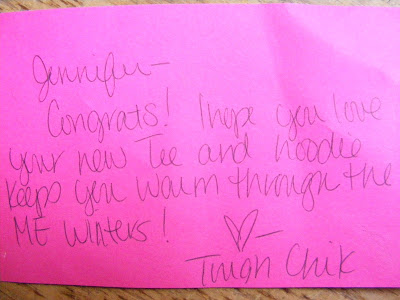 Jennifer-
Congrats! I hope you love
your new Tee and hoodie
keeps you warm through the
ME winters!
♡-
Tough Chik